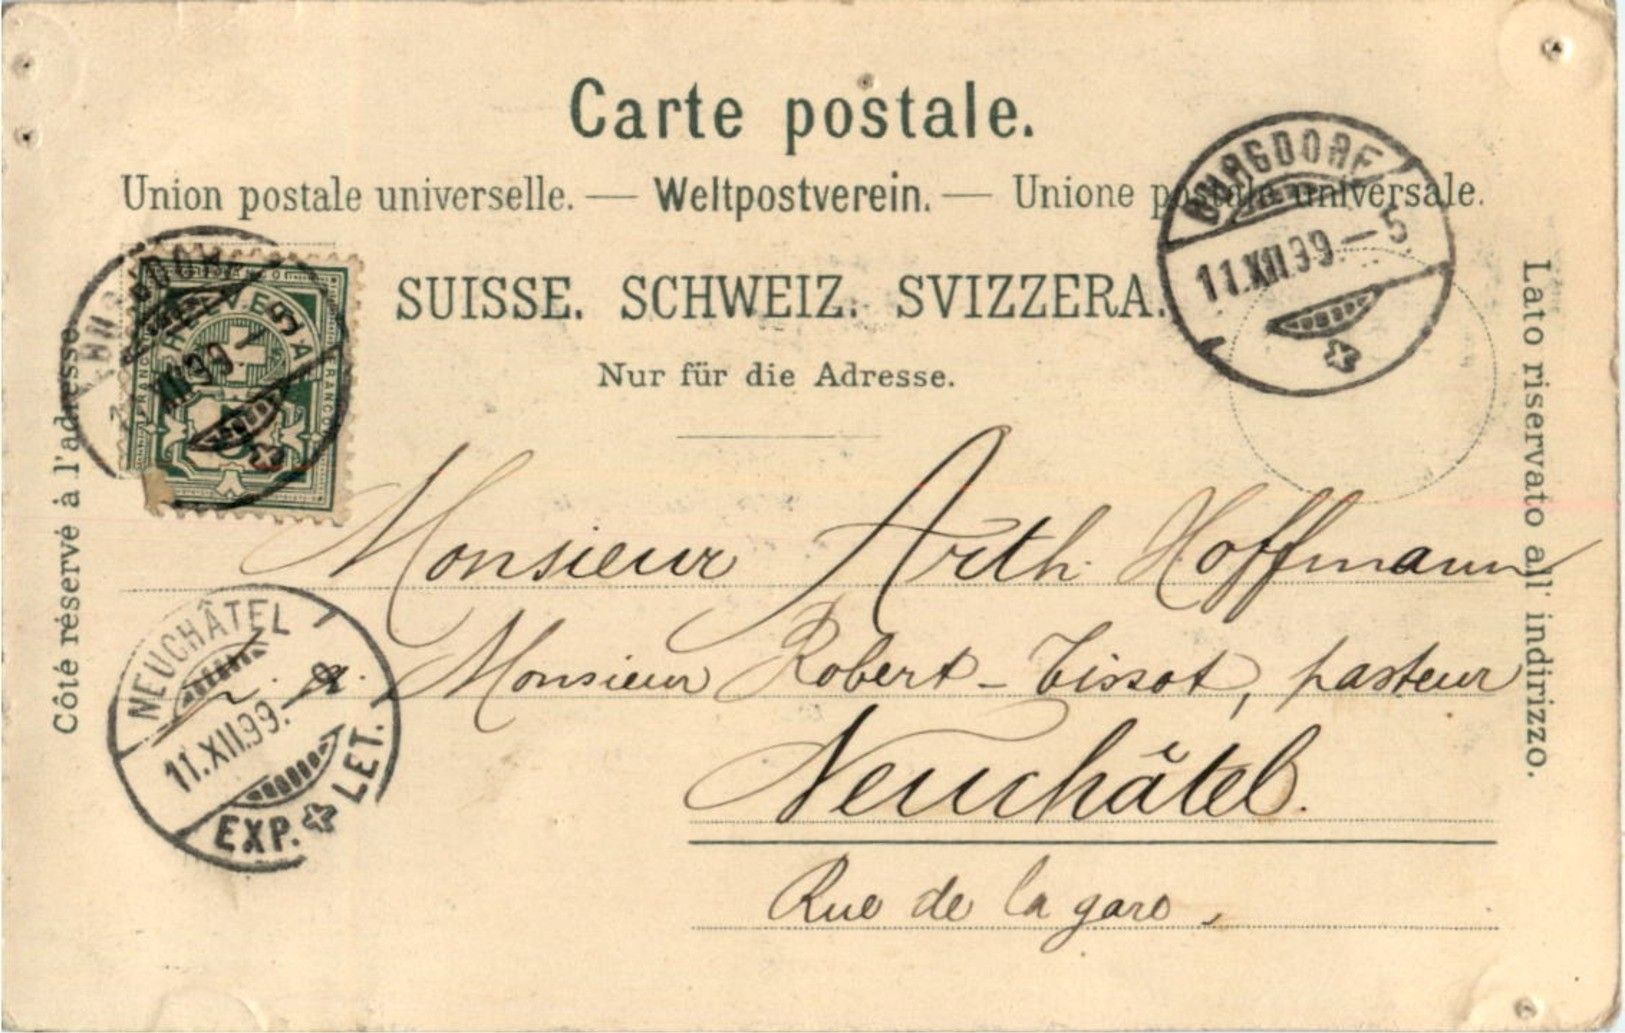 Carte postale.
Union postale universelle. — Weltpostverein. — Unione postale universale.
SUISSE. SCHWEIZ. SVIZZERA.
Nur für die Adresse.
Côté réservé à l'adresse
Lato riservato all' indirizzo.
BURGDORF
11.XII.99.—5
BURGDORF
XII.99
HELVETIA
FRANCO
FRANCO
5
Monsieur Arth. Hoffmann
Monsieur Robert-Tissot, pasteur
Neuchâtel.
Rue de la gare.
NEUCHÂTEL
11.XII.99.
EXP. LET.